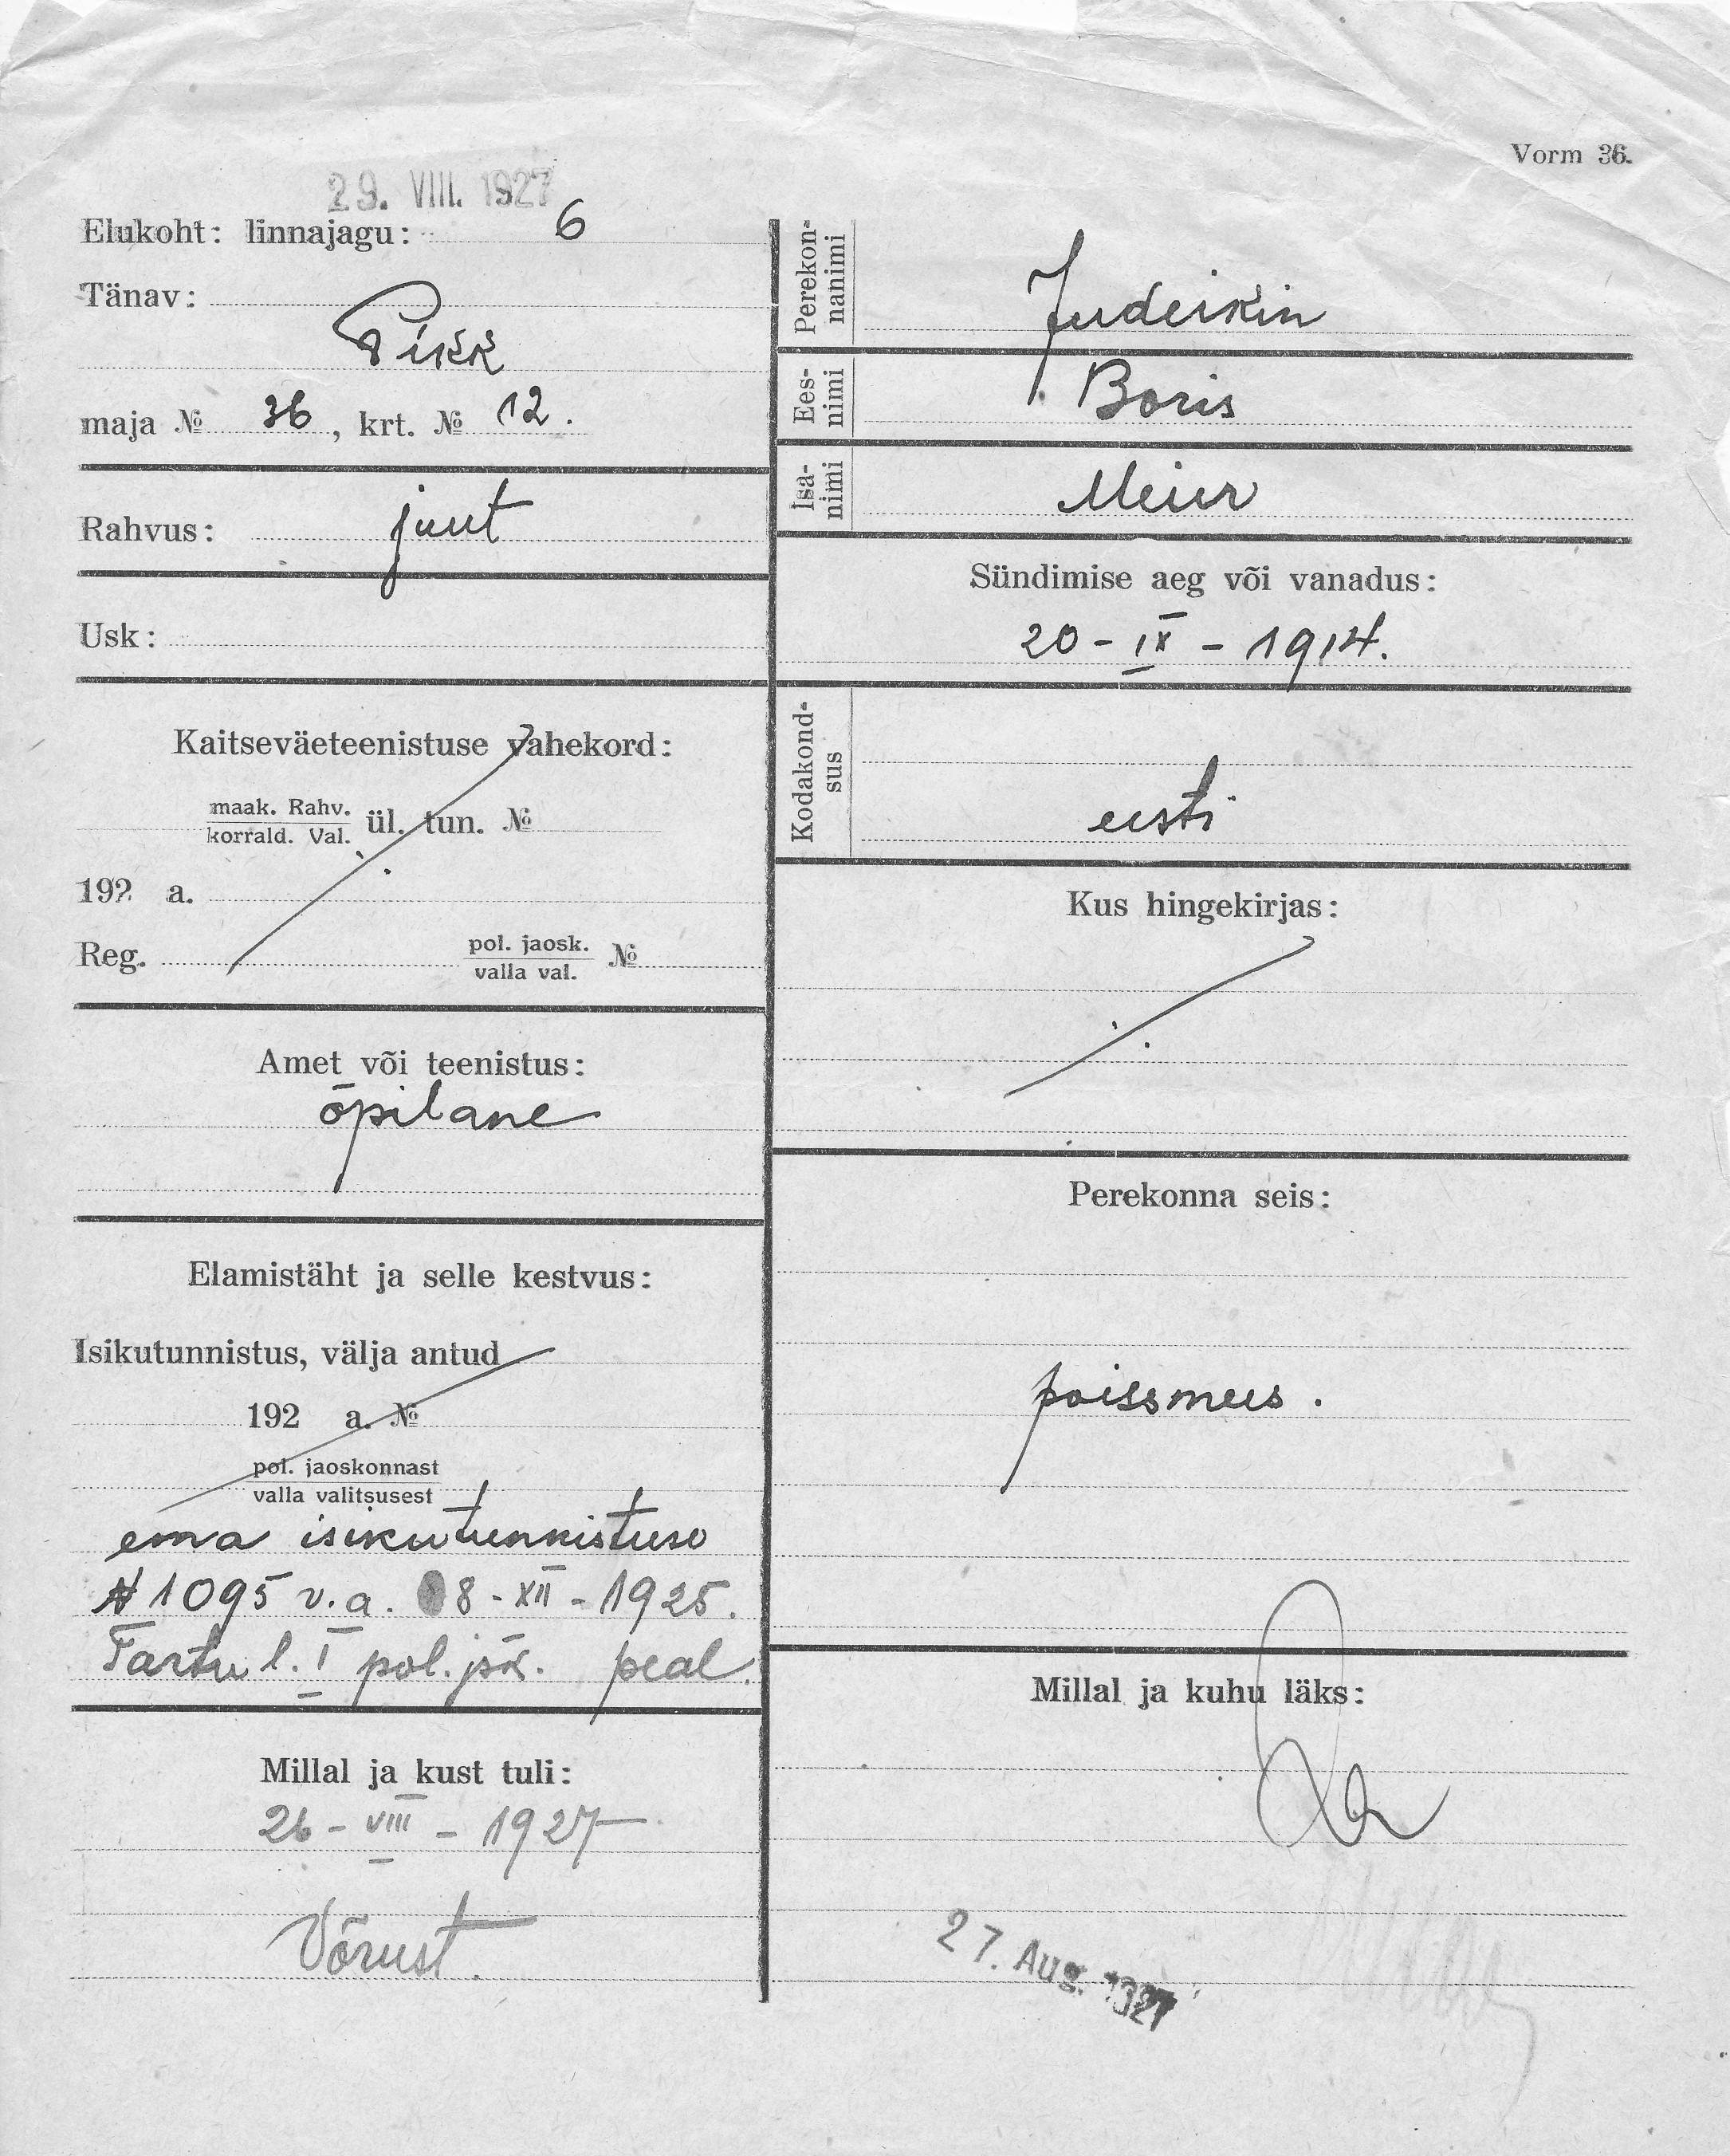 Vorm 36.
29. VIII. 1927
Elukoht: linnajagu: 6
Tänav:
Pikk
maja № 36, krt. № 12.
Rahvus: juut
Usk:
Kaitseväeteenistuse vahekord:
maak. Rahv.
korrald. Val. ül. tun. №
192 a.
Reg. pol. jaosk. №
valla val.
Amet või teenistus:
õpilane
Elamistäht ja selle kestvus:
Isikutunnistus, välja antud
192 a. №
pol. jaoskonnast
valla valitsusest
ema isikutunnistuse
№ 1095 v.a. 8-XII-1925.
Tartu l. I pol. jsk. peal.
Millal ja kust tuli:
26-VIII-1927
Võrust.
Perekon-
nanimi
Judeikin
Ees-
nimi
Boris
Isa-
nimi
Meier
Sündimise aeg või vanadus:
20-IX-1914.
Kodakond-
sus
eesti
Kus hingekirjas:
Perekonna seis:
poissmees.
Millal ja kuhu läks:
27. Aug. 1927